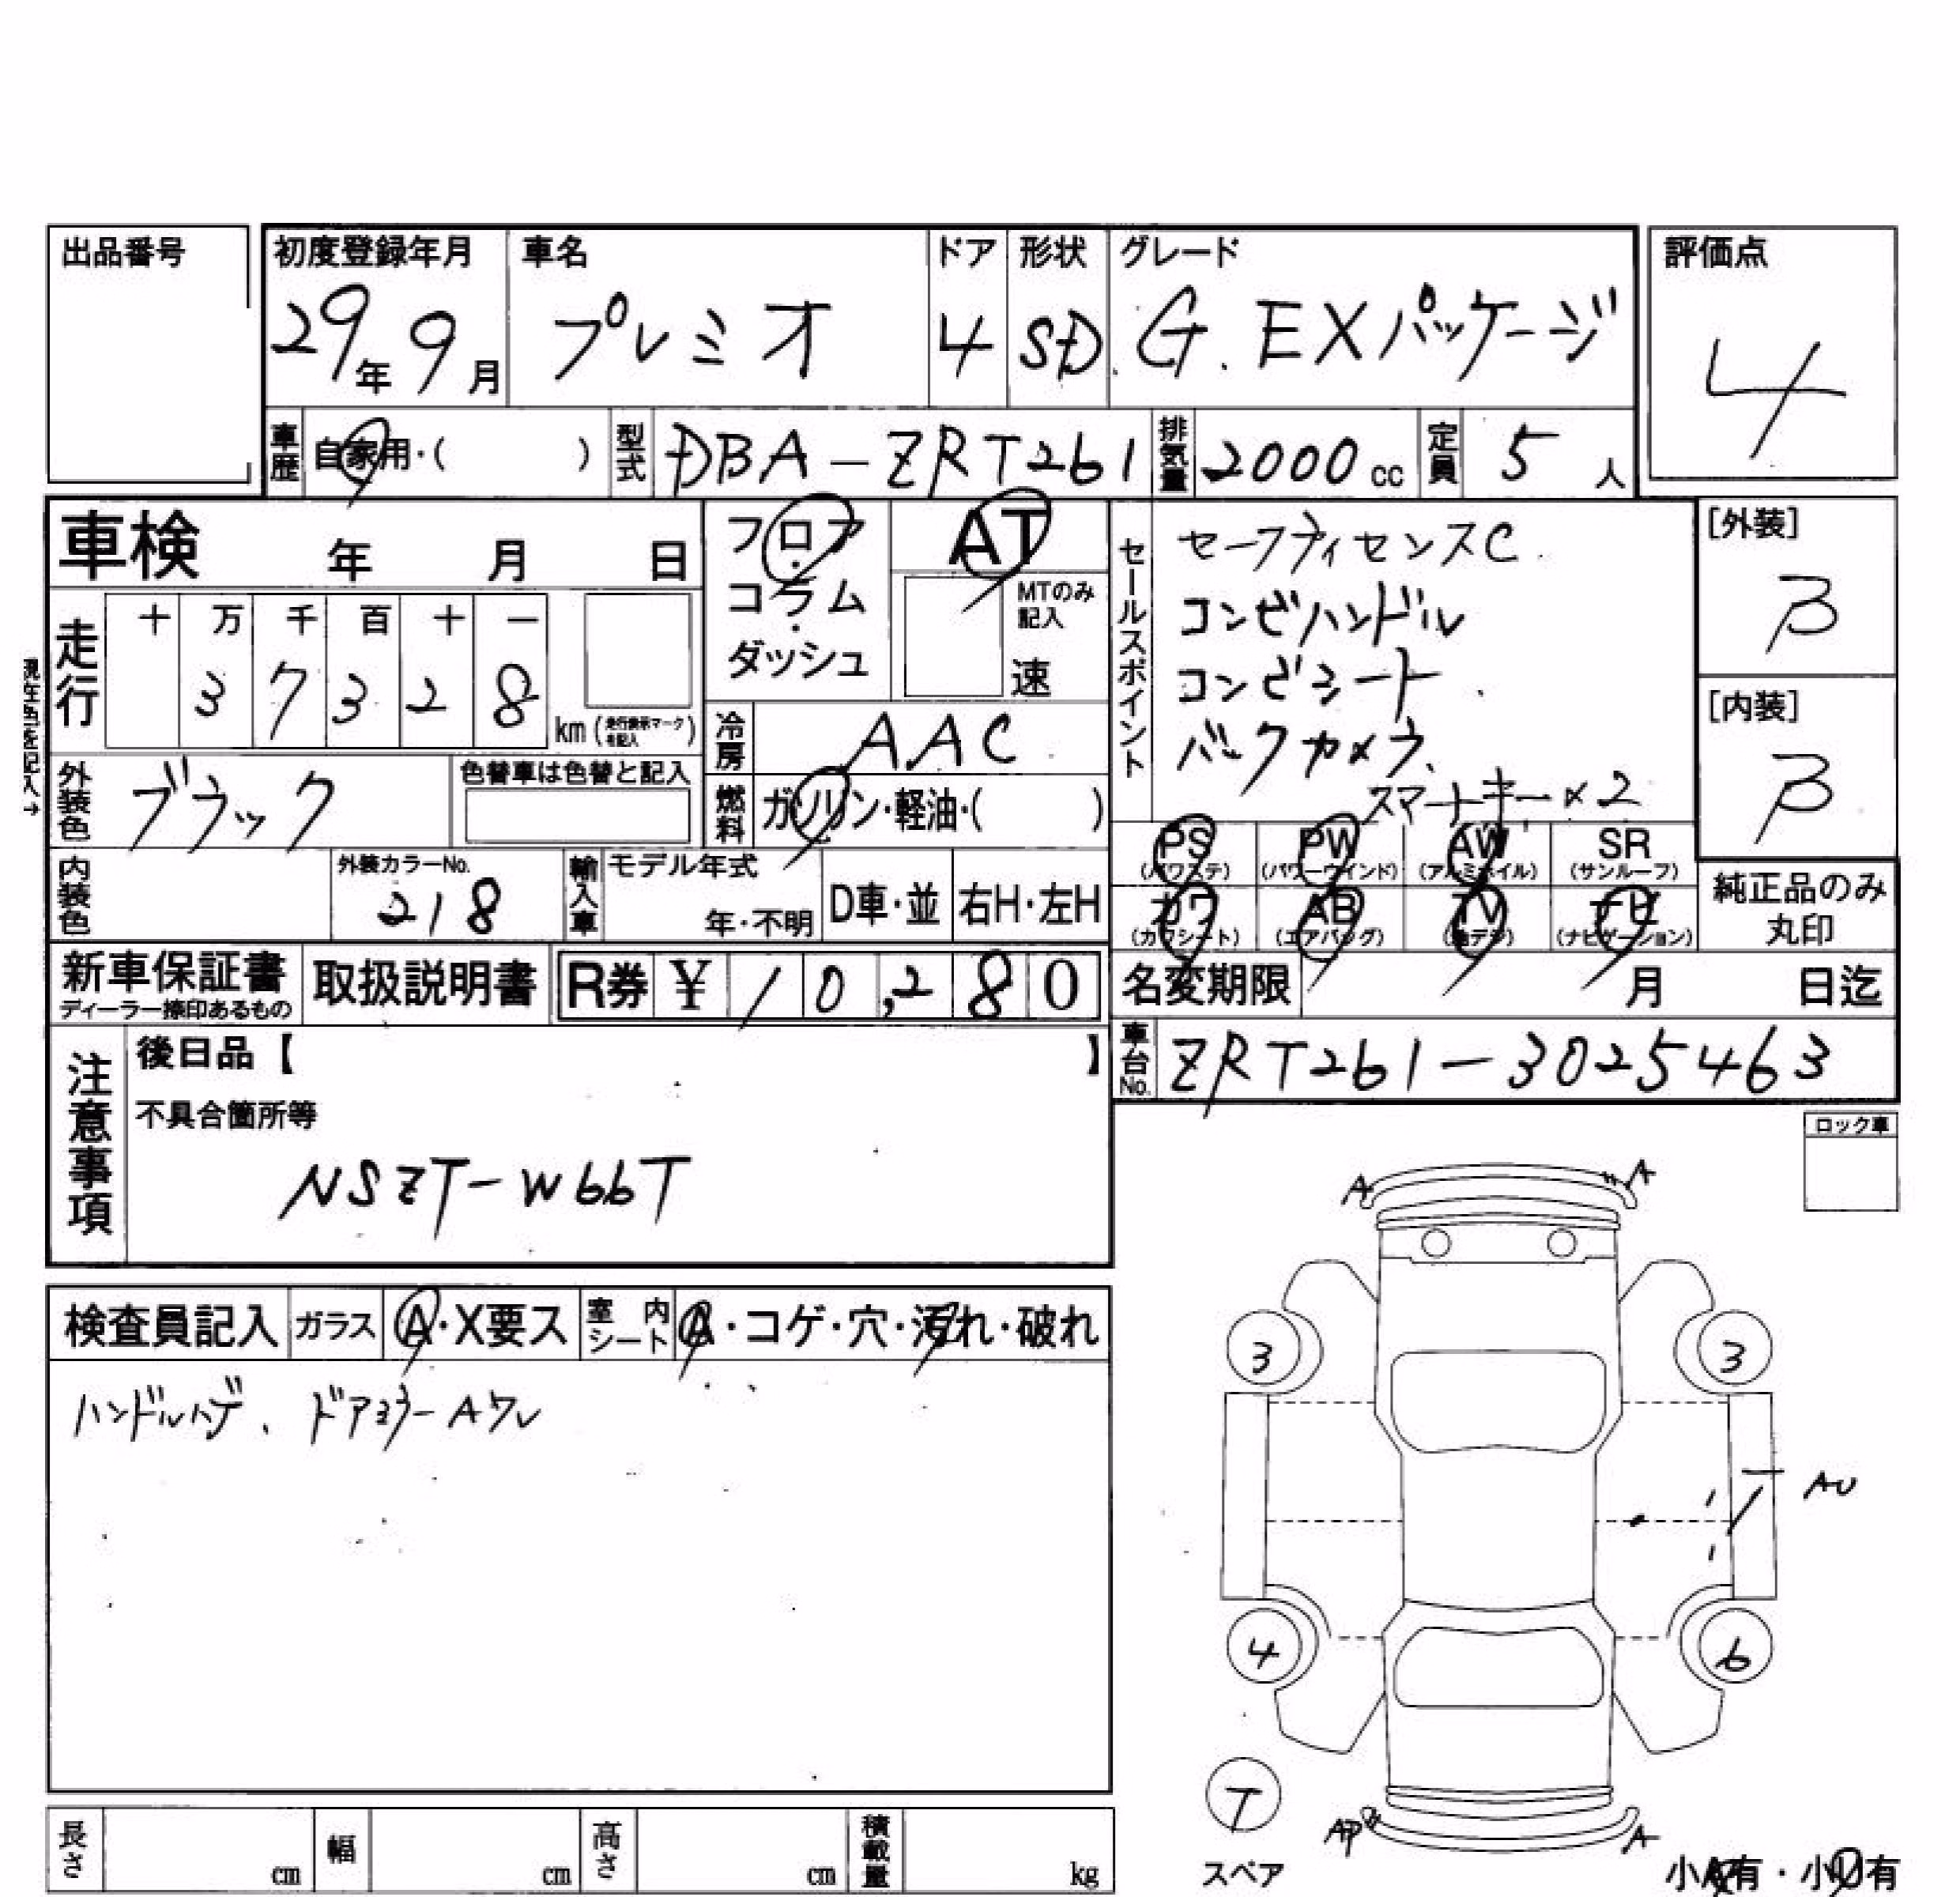 出品番号
初度登録年月 車名 ドア 形状 グレード 評価点
29年 9月 プレミオ 4 SD G.EXパッケージ 4
車歴 自家用・( ) 型式 DBA-ZRT261 排気量 2000cc 定員 5人
車検 年 月 日
フロア・コラム・ダッシュ
AT
MTのみ記入
速
セールスポイント
セーフティセンスC
コンビハンドル
コンビシート
バックカメラ
スマートキー×2
[外装]
B
[内装]
B
現在色を記入→
走行 十 万 千 百 十 一
3 7 3 2 8 km (走行表示マークを記入)
冷房 AAC
外装色 ブラック 色替車は色替と記入
燃料 ガソリン・軽油・( )
PS (パワステ) PW (パワーウインド) AW (アルミホイル) SR (サンルーフ)
カワ (カワシート) AB (エアバッグ) TV (地デジ) ナビ (ナビゲーション)
純正品のみ
丸印
内装色 外装カラーNo. 218 輸入車 モデル年式 年・不明 D車・並 右H・左H
新車保証書 ディーラー捺印あるもの 取扱説明書 R券 ¥ 10,280
名変期限 月 日迄
注意事項 後日品【 】
不具合箇所等
NSZT-W66T
車台No. ZRT261-3025463
ロック車
検査員記入 ガラス A・X要ス 室内シート A・コゲ・穴・汚れ・破れ
ハンドルハゲ、ドアミラーAワレ
A A
3 3
AU
4 6
T
スペア
AP A
小A有・小U有
長さ cm 幅 cm 高さ cm 積載量 kg